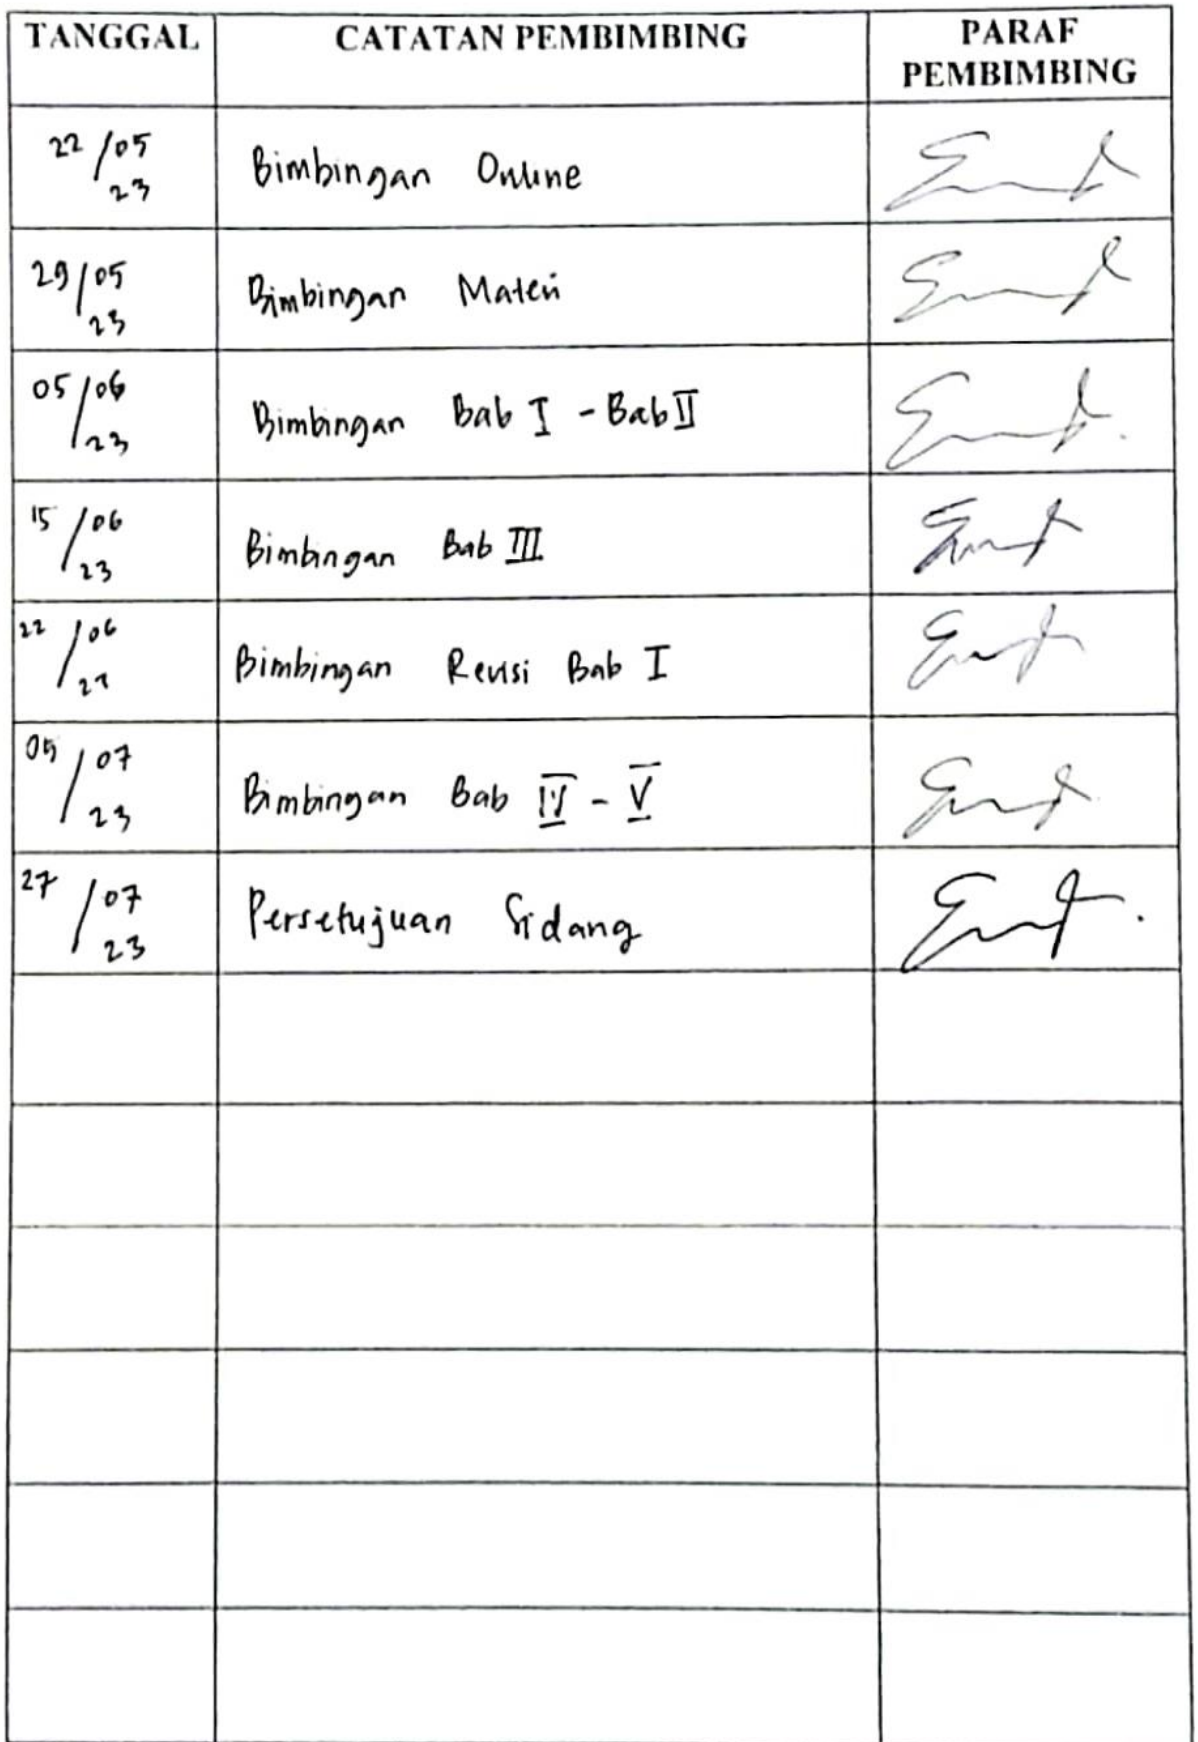 TANGGAL CATATAN PEMBIMBING PARAF PEMBIMBING
22/05 23 Bimbingan Online
29/05 23 Bimbingan Materi
05/06 23 Bimbingan Bab I - Bab II
15/06 23 Bimbingan Bab III
22/06 Bimbingan Revisi Bab I
05/07 23 Bimbingan Bab IV - V
27/07 23 Persetujuan Sidang